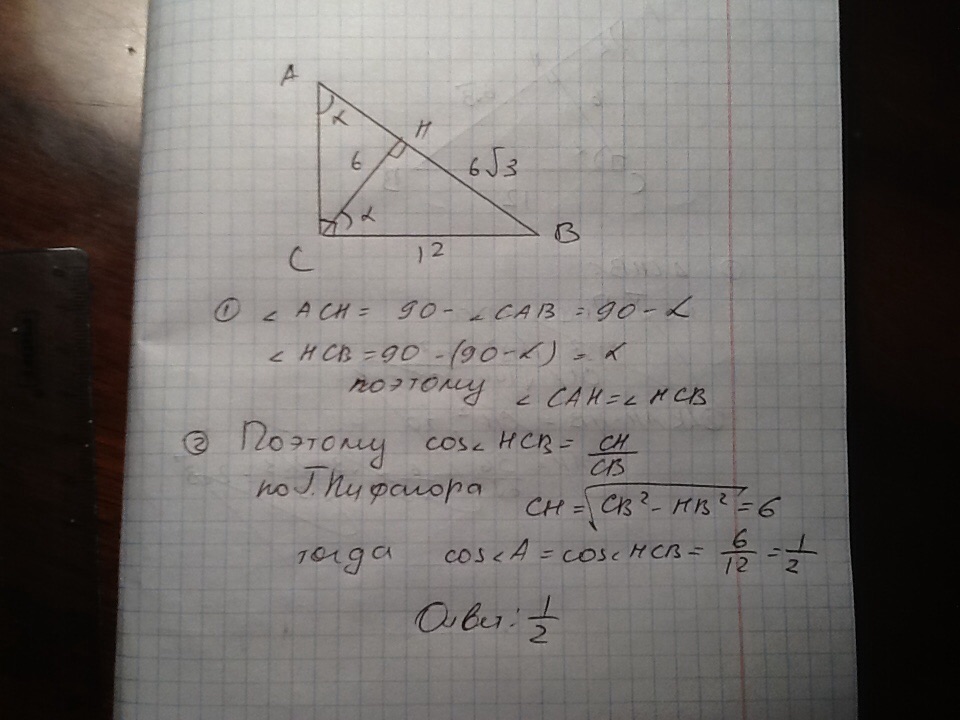 A
α
H
6
6√3
α
C
12
B
① ∠ ACH = 90 - ∠ CAB = 90 - α
∠ HCB = 90 - (90 - α) = α
поэтому ∠ CAH = ∠ HCB
② Поэтому cos∠ HCB = CH/CB
по Т. Пифагора CH = √(CB² - HB²) = 6
тогда cos∠A = cos∠HCB = 6/12 = 1/2
Ответ: 1/2